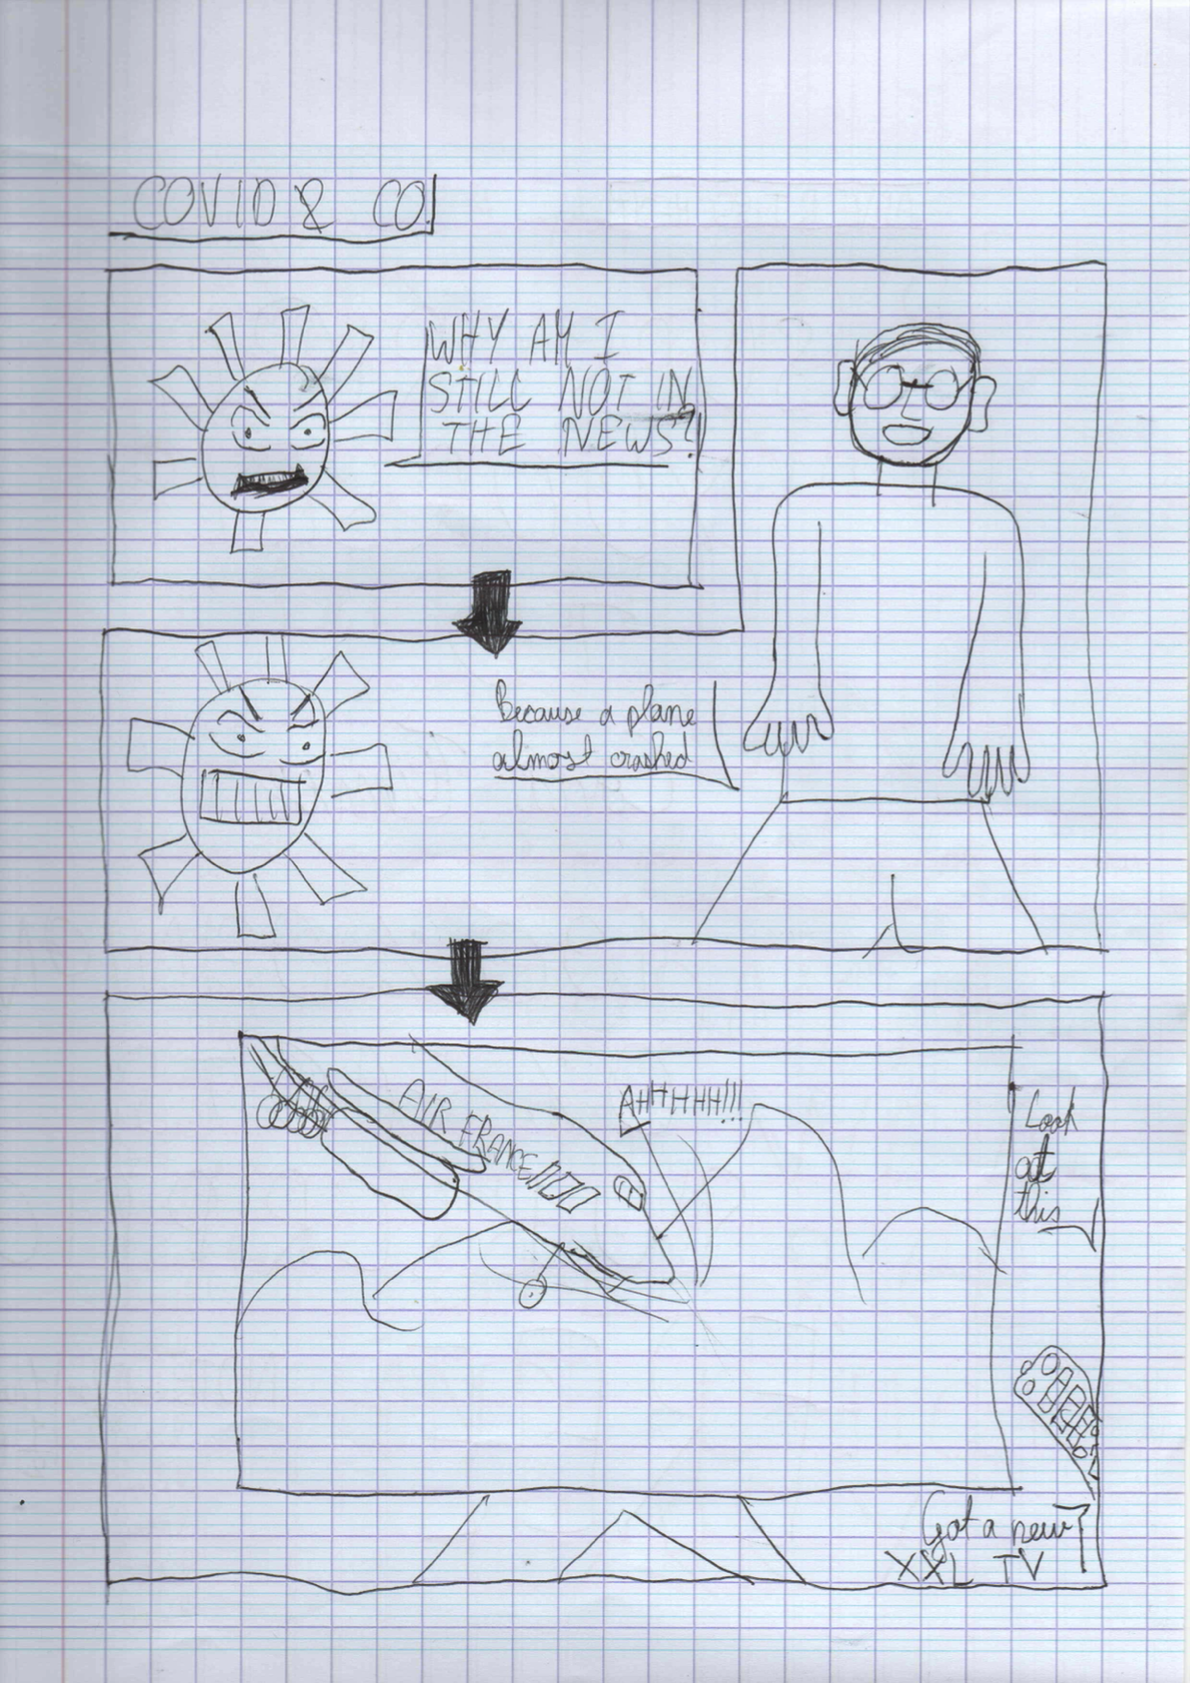 COVID & CO!
WHY AM I
STILL NOT IN
THE NEWS?!
Because a plane
almost crashed
AIR FRANCE
AHHHHHH!!!
Look
at
this
Got a new
XXL TV